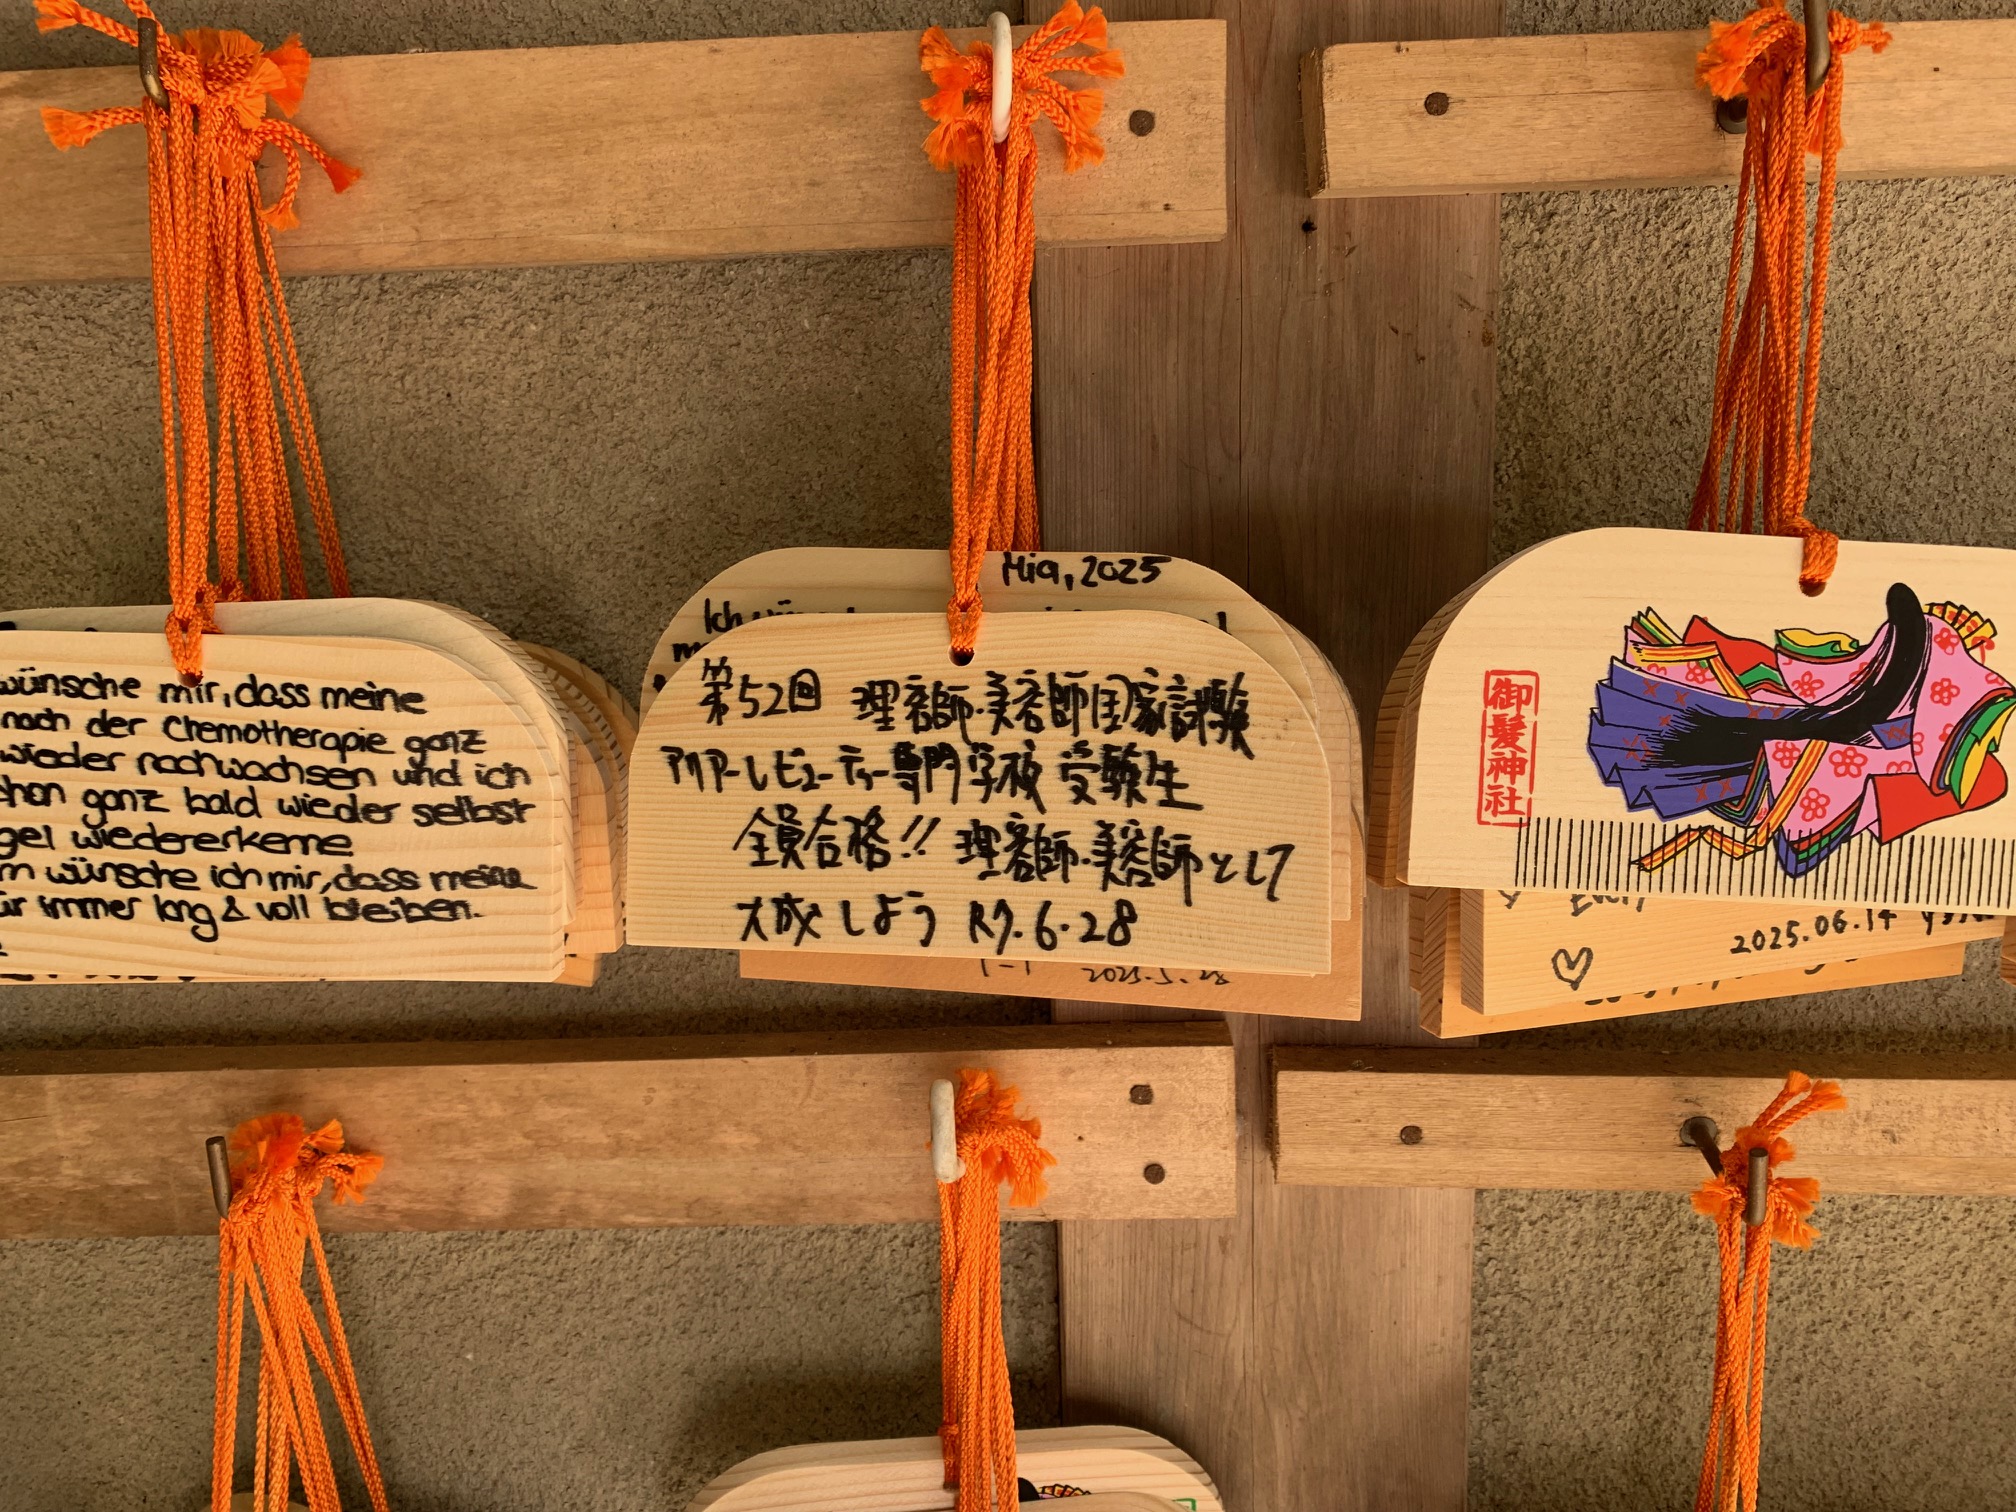 wünsche mir, dass meine
nach der Chemotherapie ganz
wieder nachwachsen und ich
ganz bald wieder selbst
wiedererkenne
wünsche ich mir, dass meine
immer lang & voll bleiben.
Mia, 2025
Ich
第52回 理容師・美容師国家試験
アリアーレビューティー専門学校 受験生
全員合格!! 理容師・美容師として
大成しよう R7.6.28
2025.5.28
御髪神社
2025.06.14